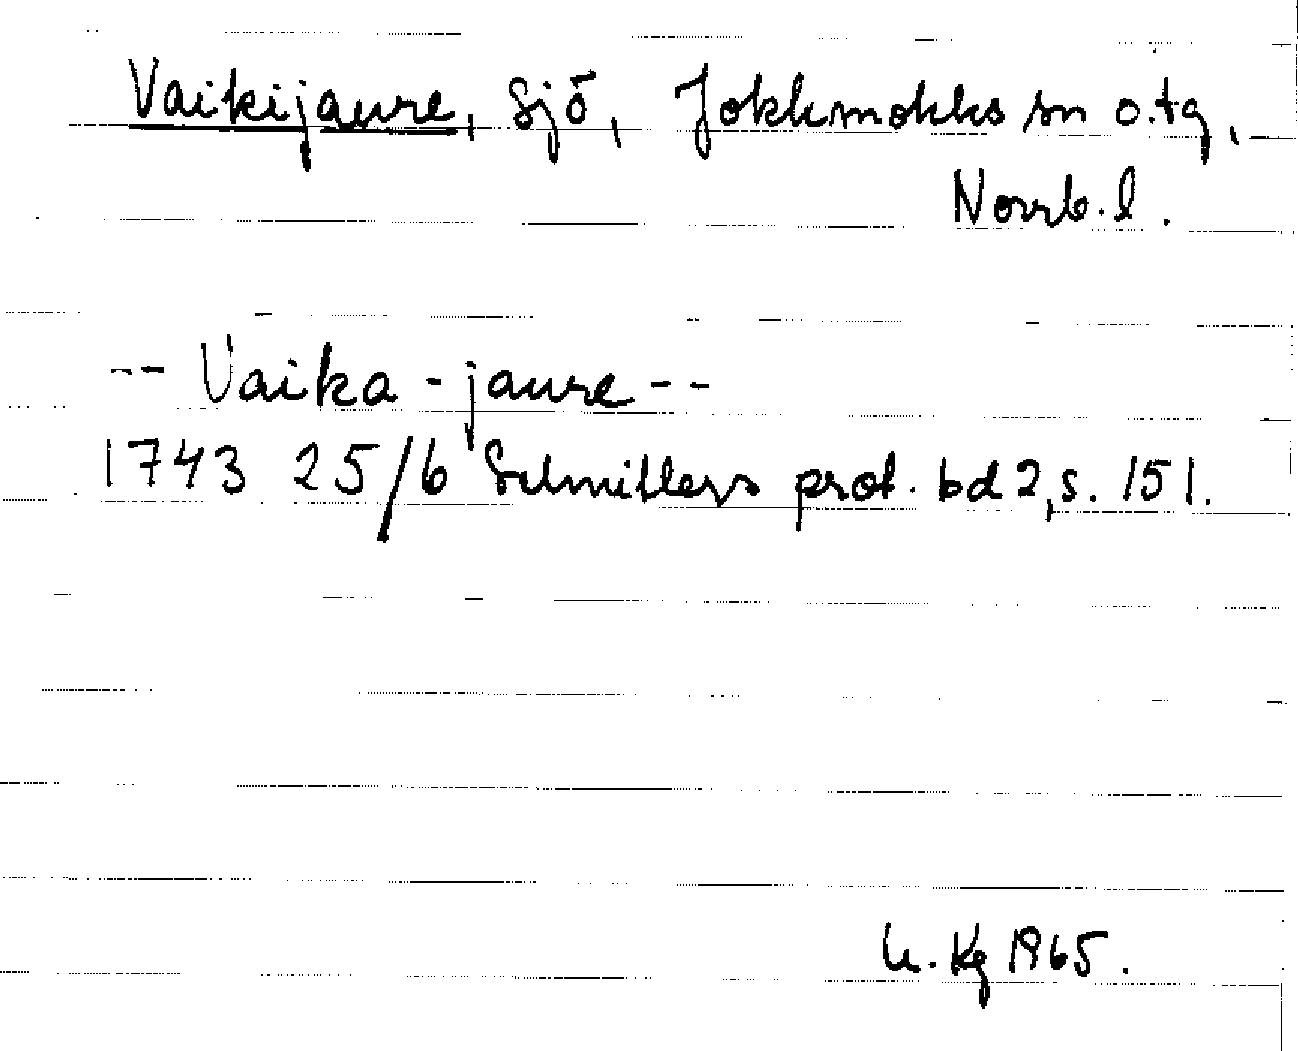 Vaikijaure, sjö, Jokkmokks sn o. tg,
Norrb. l.
-- Vaika - jaure --
1743 25/6 Schnitlers prot. bd 2, s. 151.
U. Kg 1965.